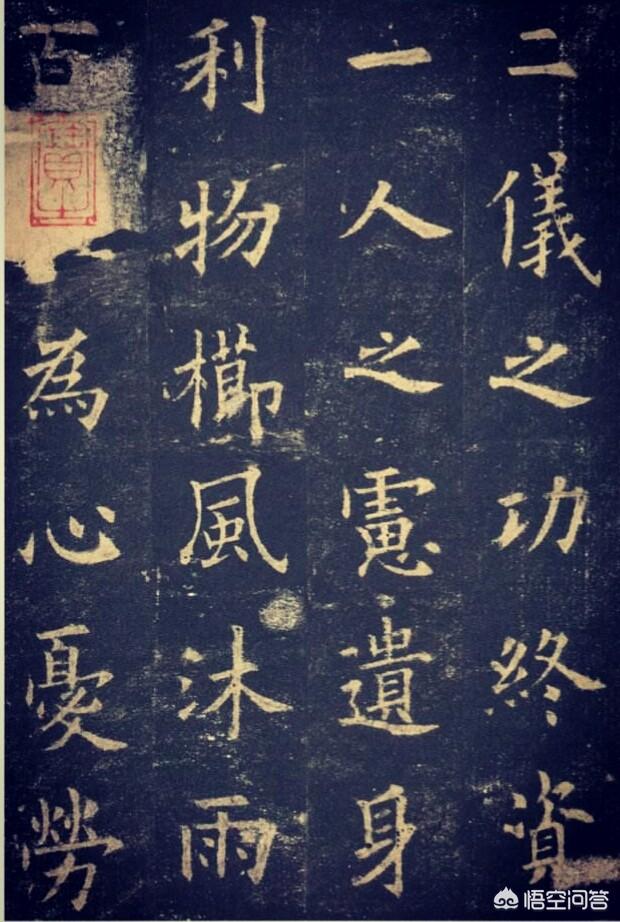 二儀之功終資
一人之慮遺身
利物櫛風沐雨
百為心憂勞
悟空问答